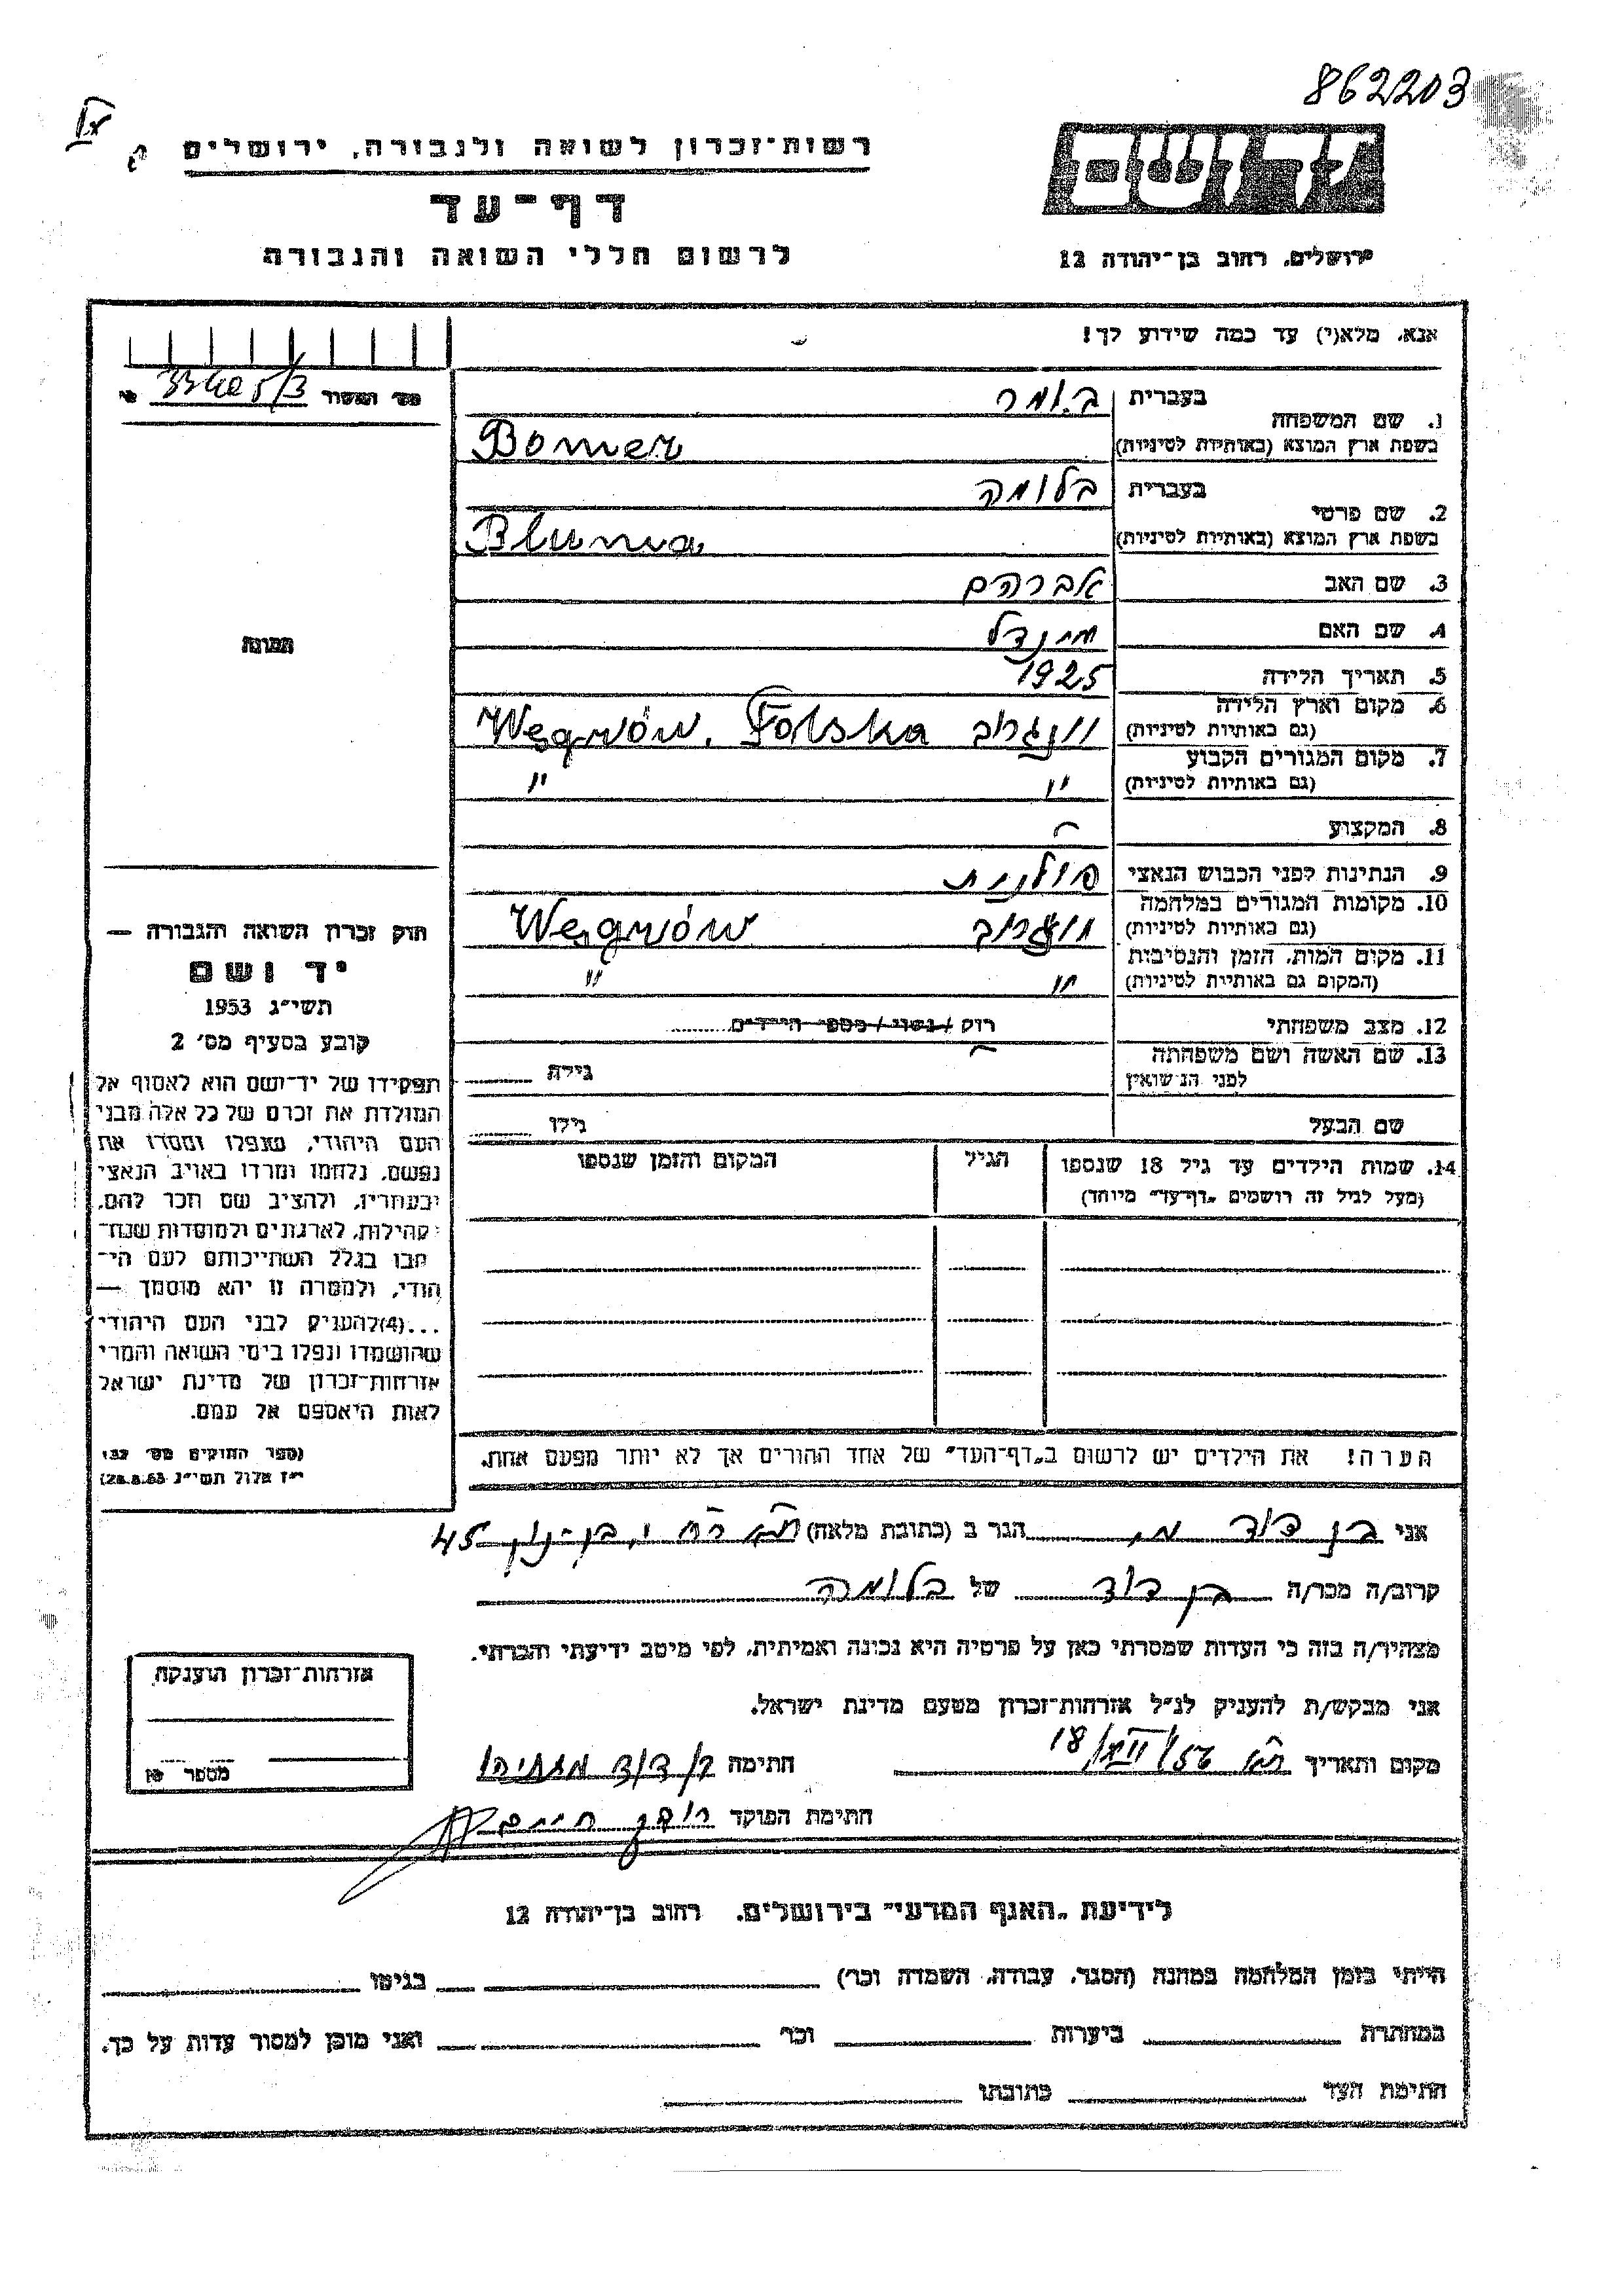 862203
רשות־זכרון לשואה ולגבורה, ירושלים
דף־עד
לרשום חללי השואה והגבורה
יד ושם
ירושלים, רחוב בן־יהודה 12
אנא, מלא(י) עד כמה שידוע לך!
1. שם המשפחה בעברית בומר
בשפת ארץ המוצא (באותיות לטיניות) Bomer
2. שם פרטי בעברית בלומה
בשפת ארץ המוצא (באותיות לטיניות) Bluma
3. שם האב אברהם
4. שם האם מינדל
5. תאריך הלידה 1925
6. מקום וארץ הלידה
(גם באותיות לטיניות) וונגרוב Węgrów, Polska
7. מקום המגורים הקבוע
(גם באותיות לטיניות) " "
8. המקצוע
9. הנתינות לפני הכבוש הנאצי פולנית
10. מקומות המגורים במלחמה
(גם באותיות לטיניות) וונגרוב Węgrów
11. מקום המות, הזמן והנסיבות
(המקום גם באותיות לטיניות) " "
12. מצב משפחתי רווק / נשוי / מספר הילדים
13. שם האשה ושם משפחתה
לפני הנשואין גילה
שם הבעל גילו
14. שמות הילדים עד גיל 18 שנספו הגיל המקום והזמן שנספו
(מעל לגיל זה רושמים „דף־עד" מיוחד)
הערה! את הילדים יש לרשום ב„דף־העד" של אחד ההורים אך לא יותר מפעם אחת.
מס' האשור
תמונה
חוק זכרון השואה והגבורה —
יד ושם
תשי״ג 1953
קובע בסעיף מס׳ 2
תפקידו של יד־ושם הוא לאסוף אל
המולדת את זכרם של כל אלה מבני
העם היהודי, שנפלו ומסרו את
נפשם, נלחמו ומרדו באויב הנאצי
ובעוזריו, ולהציב שם וזכר להם,
לקהילות, לארגונים ולמוסדות שנח־
רבו בגלל השתייכותם לעם הי־
הודי, ולמטרה זו יהא מוסמך —
...(4) להעניק לבני העם היהודי
שהושמדו ונפלו בימי השואה והמרי
אזרחות־זכרון של מדינת ישראל
לאות היאספם אל עמם.
(ספר החוקים מס׳ 132,
י״ז אלול תשי״ג 28.8.53)
אני בן דוד מ. הגר ב (כתובת מלאה) בן־נון 45
קרוב/ה מכר/ה בן דוד של בלומה
מצהיר/ה בזה כי העדות שמסרתי כאן על פרטיה היא נכונה ואמיתית, לפי מיטב ידיעתי והכרתי.
אני מבקש/ת להעניק לנ״ל אזרחות־זכרון מטעם מדינת ישראל.
מקום ותאריך 18/XII/56 חתימה בן דוד מתתיהו
חתימת הפוקד
אזרחות־זכרון הוענקה
מספר
לידיעת „האגף המדעי" בירושלים, רחוב בן־יהודה 12
הייתי בזמן המלחמה במחנה (הסגר, עבודה, השמדה וכו׳) בגיטו
במחתרת ביערות וכו׳ ואני מוכן למסור עדות על כך.
חתימת העד כתובתו